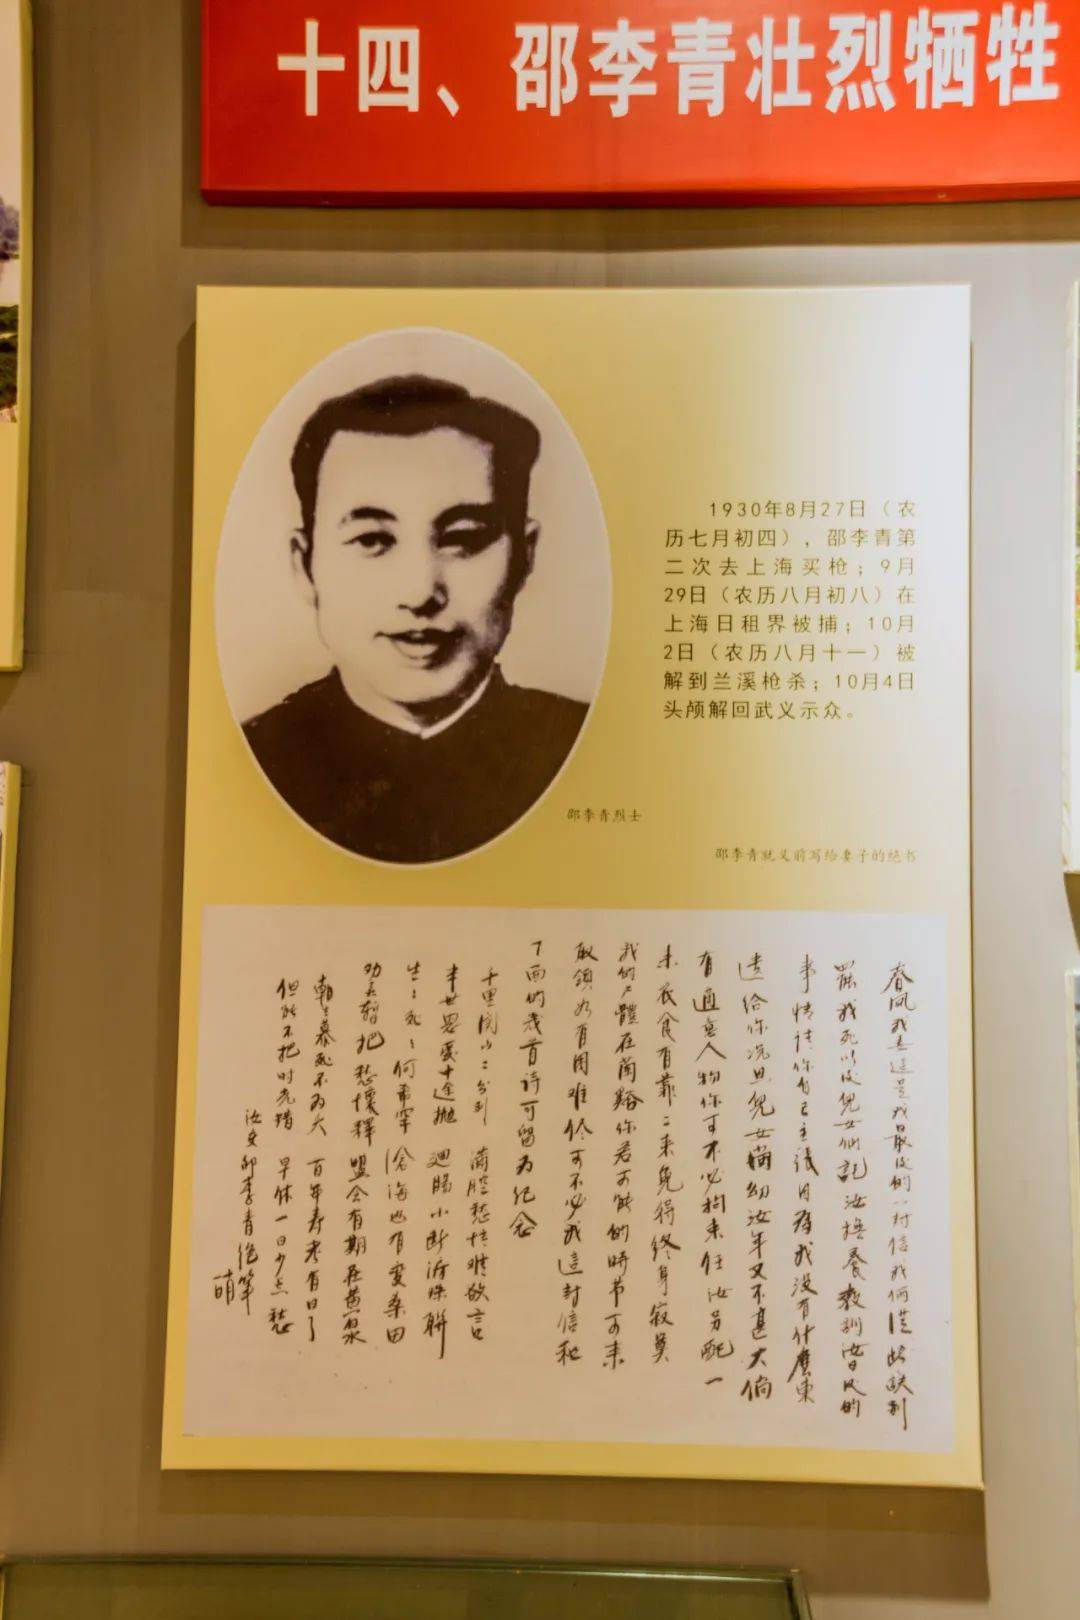 十四、邵李青壮烈牺牲
1930年8月27日（农
历七月初四），邵李青第
二次去上海买枪；9月
29日（农历八月初八）在
上海日租界被捕；10月
2日（农历八月十一）被
解到兰溪枪杀；10月4日
头颅解回武义示众。
邵李青烈士
邵李青就义前写给妻子的绝书
春风我妻這是我最后的一封信我们從此訣别
罷我死以后兒女们託汝撫養教訓汝日后的
事情請你自己主張因為我没有什麼東
遗给你况且兒女尚幼汝年又不甚大倘
有適宜人物你可不必拘束任汝另配一
来衣食有靠二来免得终身寂莫
我的尸體在蘭谿你若可能的時节可来
取領如有困难你可不必我這封信和
下面的幾首诗可留为纪念
千里関山二分别 满腔愁情难欲言
半世恩爱中途抛 迴腸小断淚珠聯
生生死死何希罕 滄海也有变桑田
劝君暂把愁懷釋 盟会有期在黄泉
朝生暮死不为夭 百年寿老有日了
但能不把时光错 早休一日少点愁
汝夫邵李青绝筆